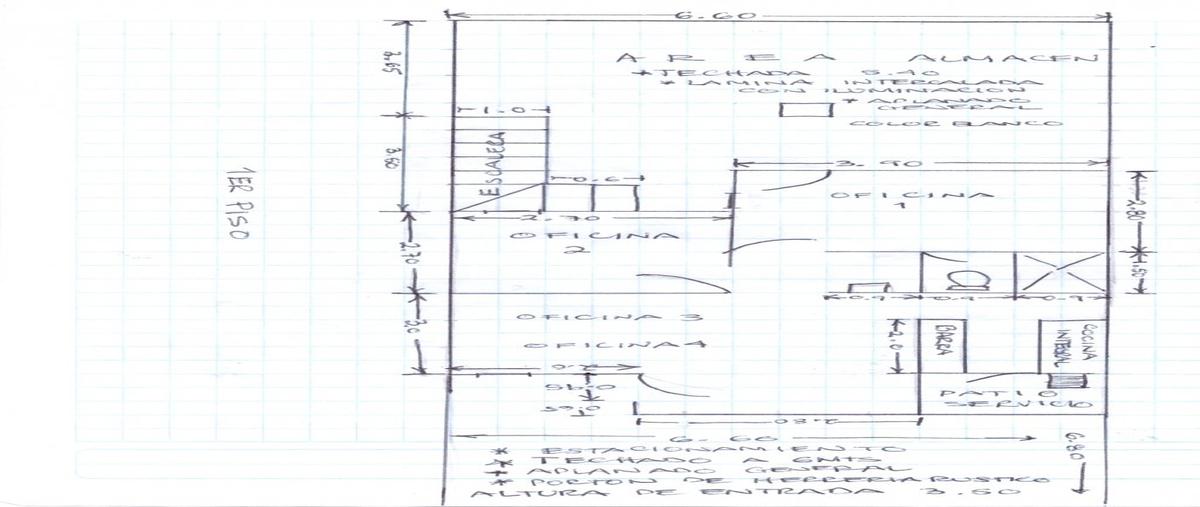 6.60
AREA ALMACEN
*TECHADA 5.40
*LAMINA INTERCALADA
CON ILUMINACION
*APLANADO
GENERAL
COLOR BLANCO
1.0
ESCALERA
3.60
3.90
OFICINA
1
2.80
0.6
2.70
OFICINA
2
2.70
1.50
1ER PISO
0.9
0.9
0.9
OFICINA 3
3.0
OFICINA 4
2.0
BARRA
COCINA
INTEGRAL
PATIO
SERVICIO
6.60
6.80
* ESTACIONAMIENTO
* TECHADO A 6MTS
* APLANADO GENERAL
* PORTON DE HERRERIA RUSTICO
ALTURA DE ENTRADA 3.50